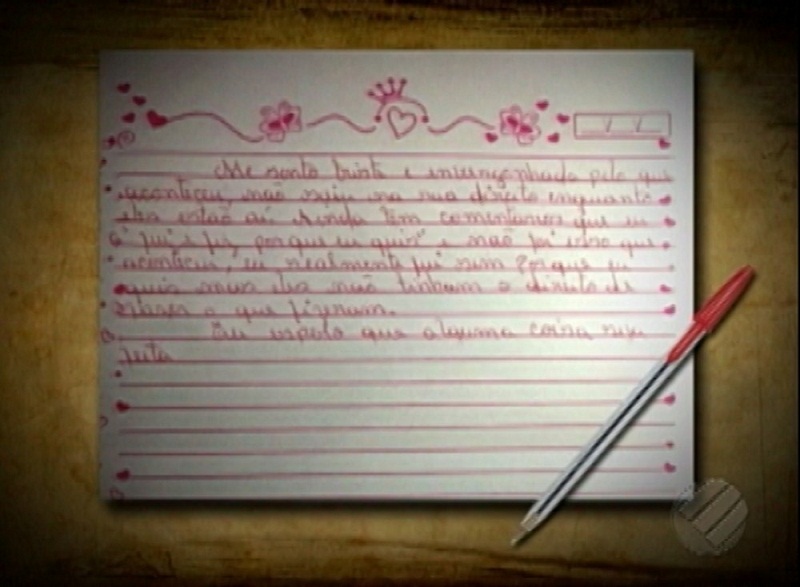 Me sinto triste e envergonhada pelo que
aconteceu, não saiu na rua direito enquanto
eles estão aí. Ainda têm comentarios que eu
"fui e fiz, porque eu quis" e não foi isso que
aconteceu, eu realmente fui sim porque eu
quis mas eles não tinham o direito de
fazer o que fizeram.
Eu espero que alguma coisa seja
feita